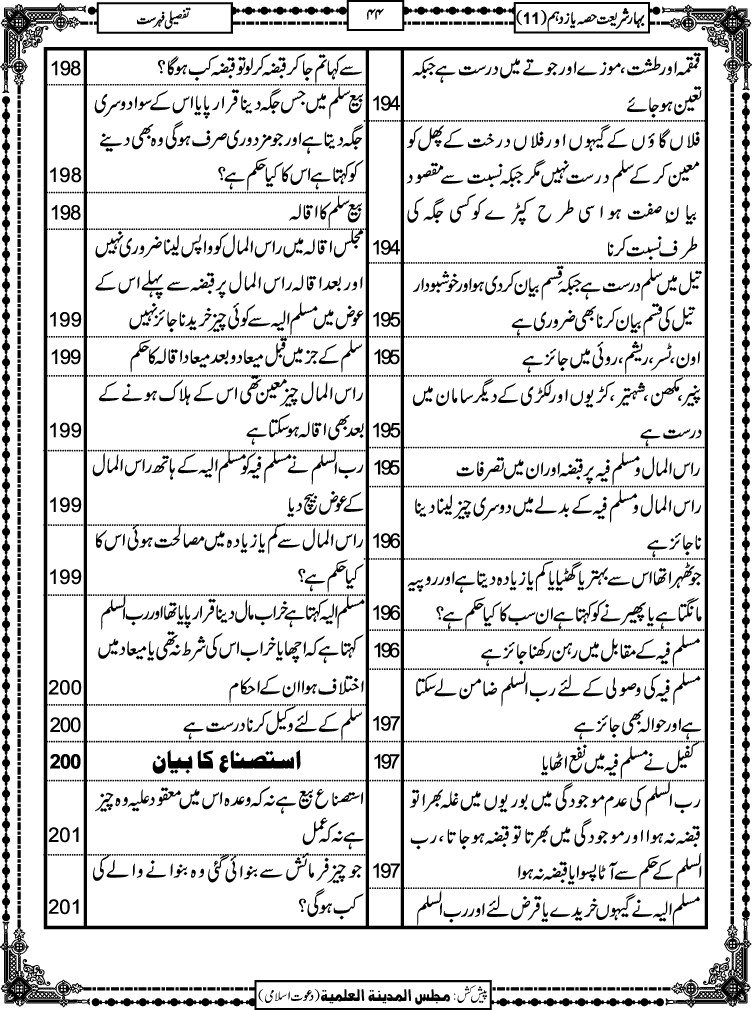 بہارشریعت حصہ یازدہم (11)
۴۴
تفصیلی فہرست
قمقمہ اور طشت، موزے اور جوتے میں درست ہے جبکہ
تعین ہوجائے 194
فلاں گاؤں کے گیہوں اور فلاں درخت کے پھل کو
معین کرکے سلم درست نہیں مگر جبکہ نسبت سے مقصود
بیان صفت ہو اسی طرح کپڑے کو کسی جگہ کی
طرف نسبت کرنا 194
تیل میں سلم درست ہے جبکہ قسم بیان کردی ہو اور خوشبودار
تیل کی قسم بیان کرنا بھی ضروری ہے 195
اون، ٹسر، ریشم، روئی میں جائز ہے 195
پنیر، مکھن، شہتیر، کڑیوں اور لکڑی کے دیگر سامان میں
درست ہے 195
راس المال و مسلم فیہ پر قبضہ اور ان میں تصرفات 195
راس المال و مسلم فیہ کے بدلے میں دوسری چیز لینا دینا
ناجائز ہے 196
جو ٹھہرا تھا اس سے بہتر یا گھٹیا یا کم یا زیادہ دیتا ہے اور روپیہ
مانگتا ہے یا پھیرنے کو کہتا ہے ان سب کا کیا حکم ہے؟ 196
مسلم فیہ کے مقابل میں رہن رکھنا جائز ہے 196
مسلم فیہ کی وصولی کے لئے رب السلم ضامن لے سکتا
ہے اور حوالہ بھی جائز ہے 197
کفیل نے مسلم فیہ میں نفع اٹھایا 197
رب السلم کی عدم موجودگی میں بوریوں میں غلہ بھرا تو
قبضہ نہ ہوا اور موجودگی میں بھرتا تو قبضہ ہوجاتا، رب
السلم کے حکم سے آٹا پسوایا قبضہ نہ ہوا 197
مسلم الیہ نے گیہوں خریدے یا قرض لئے اور رب السلم
سے کہا تم جا کر قبضہ کرلو تو قبضہ کب ہوگا؟ 198
بیع سلم میں جس جگہ دینا قرار پایا اس کے سوا دوسری
جگہ دیتا ہے اور جو مزدوری صرف ہوگی وہ بھی دینے
کو کہتا ہے اس کا کیا حکم ہے؟ 198
بیع سلم کا اقالہ 198
مجلس اقالہ میں راس المال کو واپس لینا ضروری نہیں
اور بعد اقالہ راس المال پر قبضہ سے پہلے اس کے
عوض میں مسلم الیہ سے کوئی چیز خریدنا جائز نہیں 199
سلم کے جز میں قبل میعاد و بعد میعاد اقالہ کا حکم 199
راس المال چیز معین تھی اس کے ہلاک ہونے کے
بعد بھی اقالہ ہوسکتا ہے 199
رب السلم نے مسلم فیہ کو مسلم الیہ کے ہاتھ راس المال
کے عوض بیچ دیا 199
راس المال سے کم یا زیادہ میں مصالحت ہوئی اس کا
کیا حکم ہے؟ 199
مسلم الیہ کہتا ہے خراب مال دینا قرار پایا تھا اور رب السلم
کہتا ہے کہ اچھا یا خراب اس کی شرط نہ تھی یا میعاد میں
اختلاف ہوا ان کے احکام 200
سلم کے لئے وکیل کرنا درست ہے 200
استصناع کا بیان 200
استصناع بیع ہے نہ کہ وعدہ اس میں معقود علیہ وہ چیز
ہے نہ کہ عمل 201
جو چیز فرمائش سے بنوائی گئی وہ بنوانے والے کی
کب ہوگی؟ 201
پیش کش: مجلس المدينة العلمية (دعوت اسلامی)